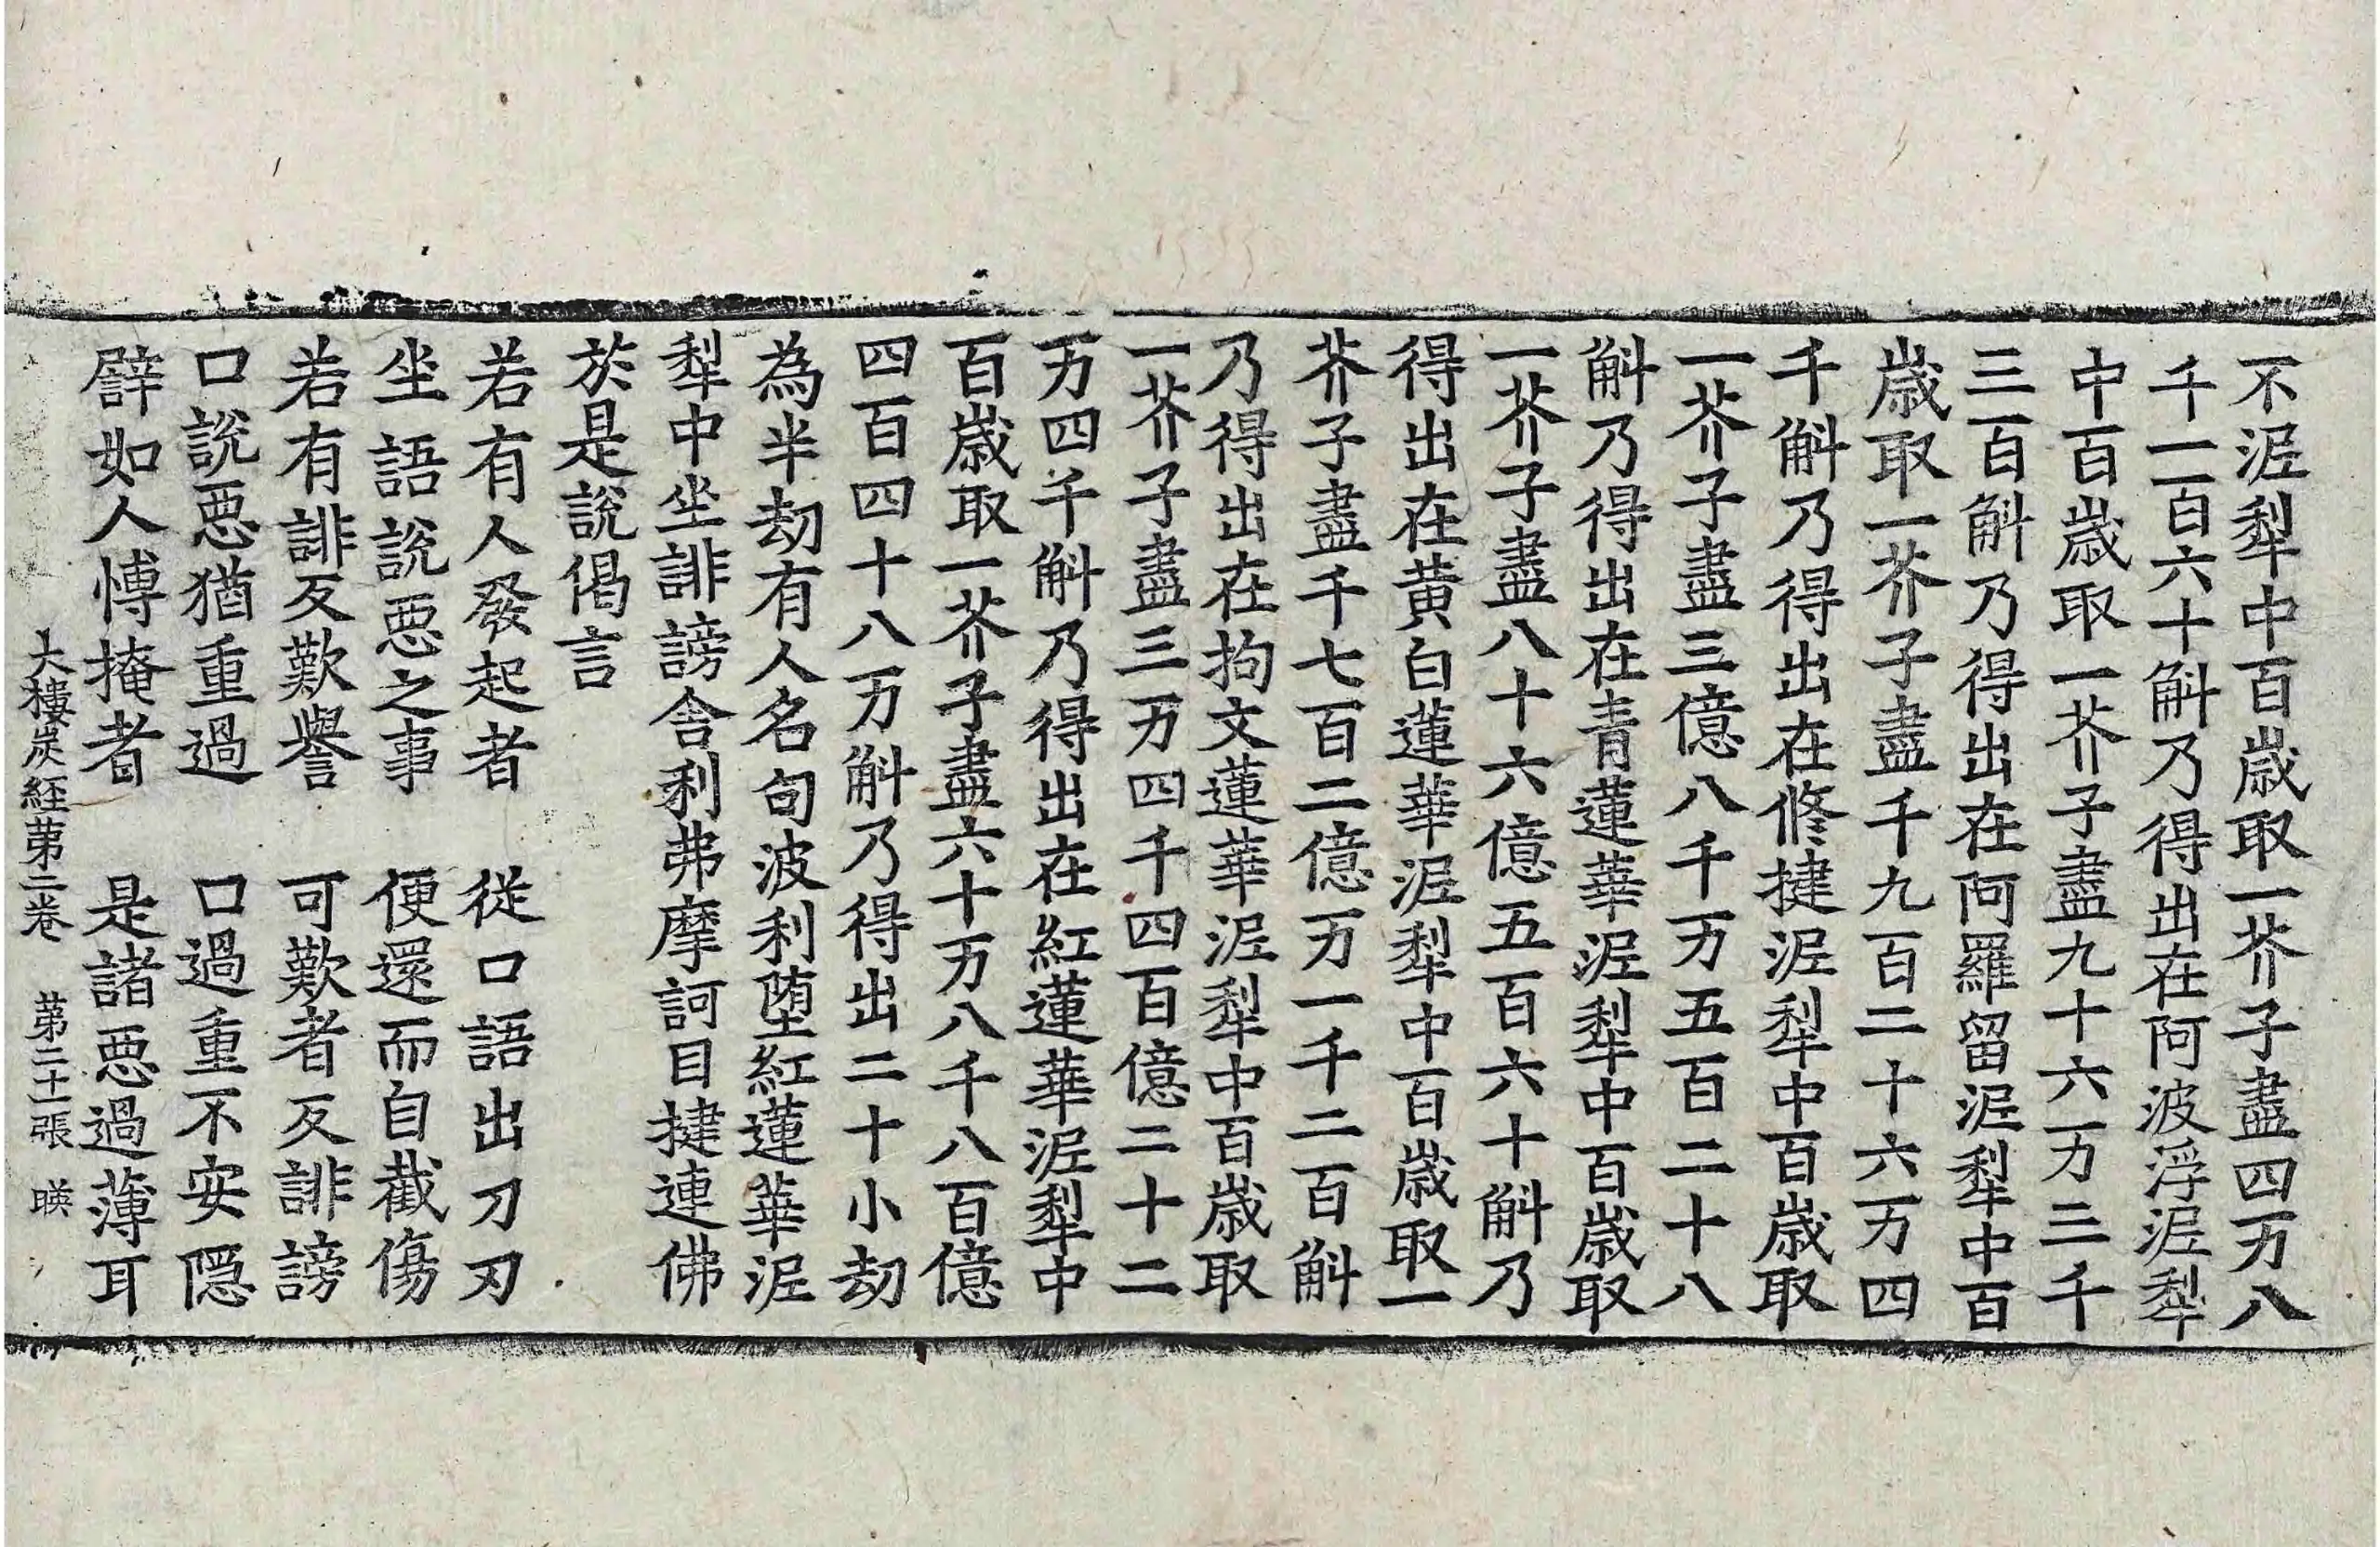 不泥犁中百歳取一芥子盡四万八
千一百六十斛乃得出在阿波浮泥犁
中百歳取一芥子盡九十六万三千
三百斛乃得出在阿羅留泥犁中百
歳取一芥子盡千九百二十六万四
千斛乃得出在修揵泥犁中百歳取
一芥子盡三億八千万五百二十八
斛乃得出在青蓮華泥犁中百歳取
一芥子盡八十六億五百六十斛乃
得出在黄白蓮華泥犁中百歳取一
芥子盡千七百二億万一千二百斛
乃得出在拘文蓮華泥犁中百歳取
一芥子盡三万四千四百億二十二
万四千斛乃得出在紅蓮華泥犁中
百歳取一芥子盡六十万八千八百億
四百四十八万斛乃得出二十小劫
為半劫有人名句波利堕紅蓮華泥
犁中坐誹謗舍利弗摩訶目揵連佛
於是說偈言
若有人發起者　從口語出刀刃
坐語說惡之事　便還而自截傷
若有誹反歎譽　可歎者反誹謗
口說惡猶重過　口過重不安隱
譬如人愽掩者　是諸惡過薄耳
大樓炭経苐二卷　苐二十一張　暎